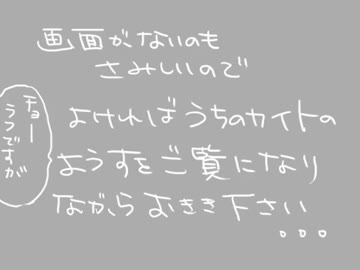 画面がないのも
さみしいので
よければうちのカイトの
ようすをご覧になり
ながらおきき下さい
...
チョー
ラフですが